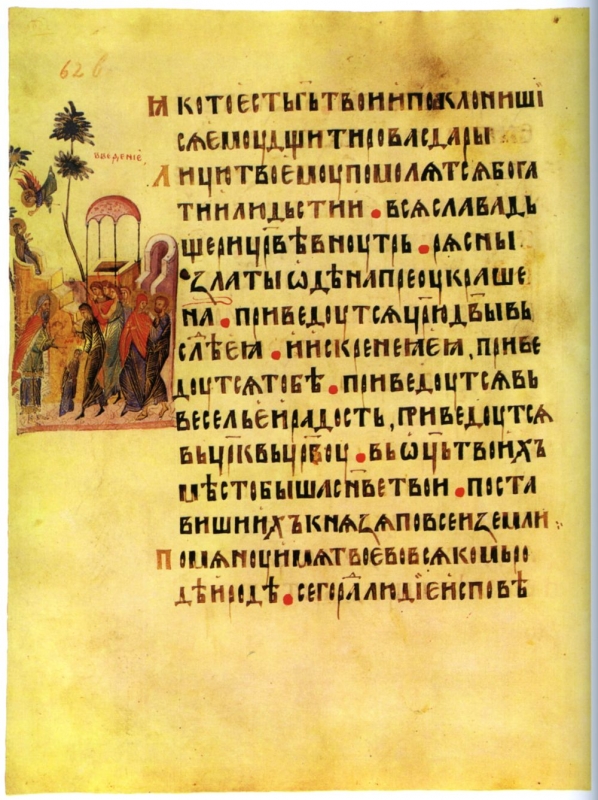 62 в
введениѥ
Ꙗ котоестьг҃ьтвоиипоклонишї
сѧемоуд҃щитировасдары
Л ицютвоемоупомолѧтсѧбога
тиилюдьстии . всѧславадъ
щерицр҃вѣвноутрь . рѧсны
ꙁлатыѡдѣнапреоукраше
на . приведоутсѧцр҃юдв҃ывь
слѣеꙗ . иискренеꙗеꙗ , приве
доутсѧтобѣ . приведоутсѧвь
весельеирадость , приведоутсѧ
вьцр҃квьцр҃воу . вьѡц҃ьтвоихъ
мѣстобышасн҃ветвои . поста
вишиихъкнѧꙁѧповсеиꙁемли
П омѧноуимѧтвоевовсѧкомьро
дѣиродѣ . сегора҃лидїеисповѣ